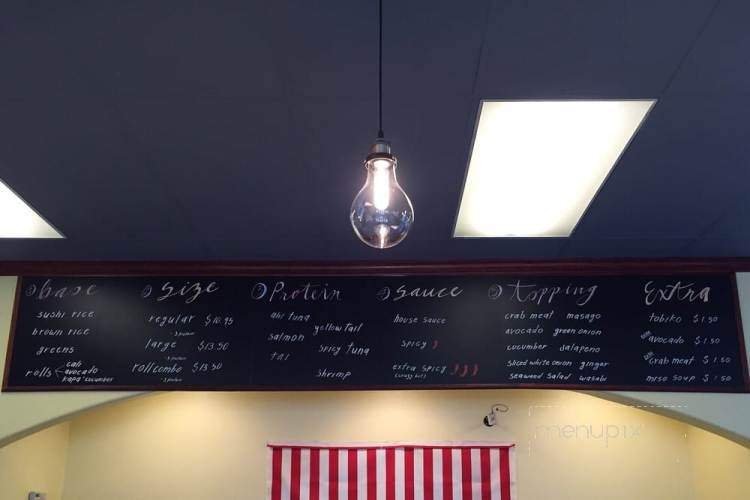 ① base
sushi rice
brown rice
greens
rolls
cali
avocado
kapa cucumber
② Size
regular $10.95
large $13.50
roll combo $13.50
③ Protein
ahi tuna
yellowtail
salmon
spicy tuna
tai
shrimp
④ Sauce
house sauce
spicy
extra spicy
(crazy hot)
⑤ topping
crab meat masago
avocado green onion
cucumber jalapeno
sliced white onion ginger
seaweed salad wasabi
Extra
tobiko $1.50
avocado $1.50
crab meat $1.50
miso soup $1.50
menupix